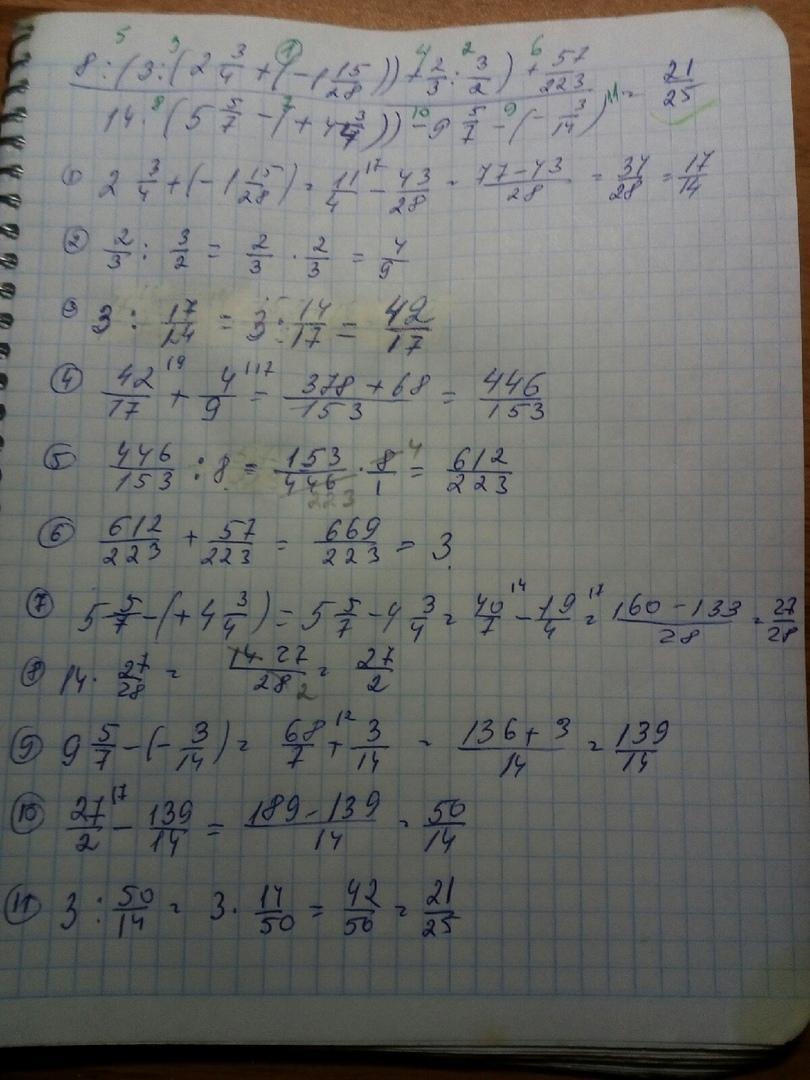 8 : (3 : (2 3/4 + (-1 15/28)) + 2/3 : 3/2) + 57/223
14 · (5 5/7 - (+4 3/4)) - 9 5/7 - (-3/14) = 21/25
① 2 3/4 + (-1 15/28) = 11/4 - 43/28 = 77-43/28 = 34/28 = 17/14
② 2/3 : 3/2 = 2/3 · 2/3 = 4/9
③ 3 : 17/14 = 3 : 14/17 = 42/17
④ 42/17 + 4/9 = 378+68/153 = 446/153
⑤ 446/153 : 8 = 153/446 223 · 8/1 4 = 612/223
⑥ 612/223 + 57/223 = 669/223 = 3
⑦ 5 5/7 - (+4 3/4) = 5 5/7 - 4 3/4 = 40/7 - 19/4 = 160-133/28 = 27/28
⑧ 14 · 27/28 = 14·27/28 2 = 27/2
⑨ 9 5/7 - (-3/14) = 68/7 + 3/14 = 136+3/14 = 139/14
⑩ 27/2 - 139/14 = 189-139/14 = 50/14
⑪ 3 : 50/14 = 3 · 14/50 = 42/50 = 21/25